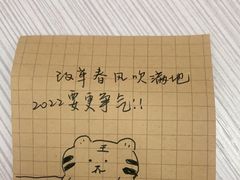 改革春风吹满地
2022要更争气!!
王